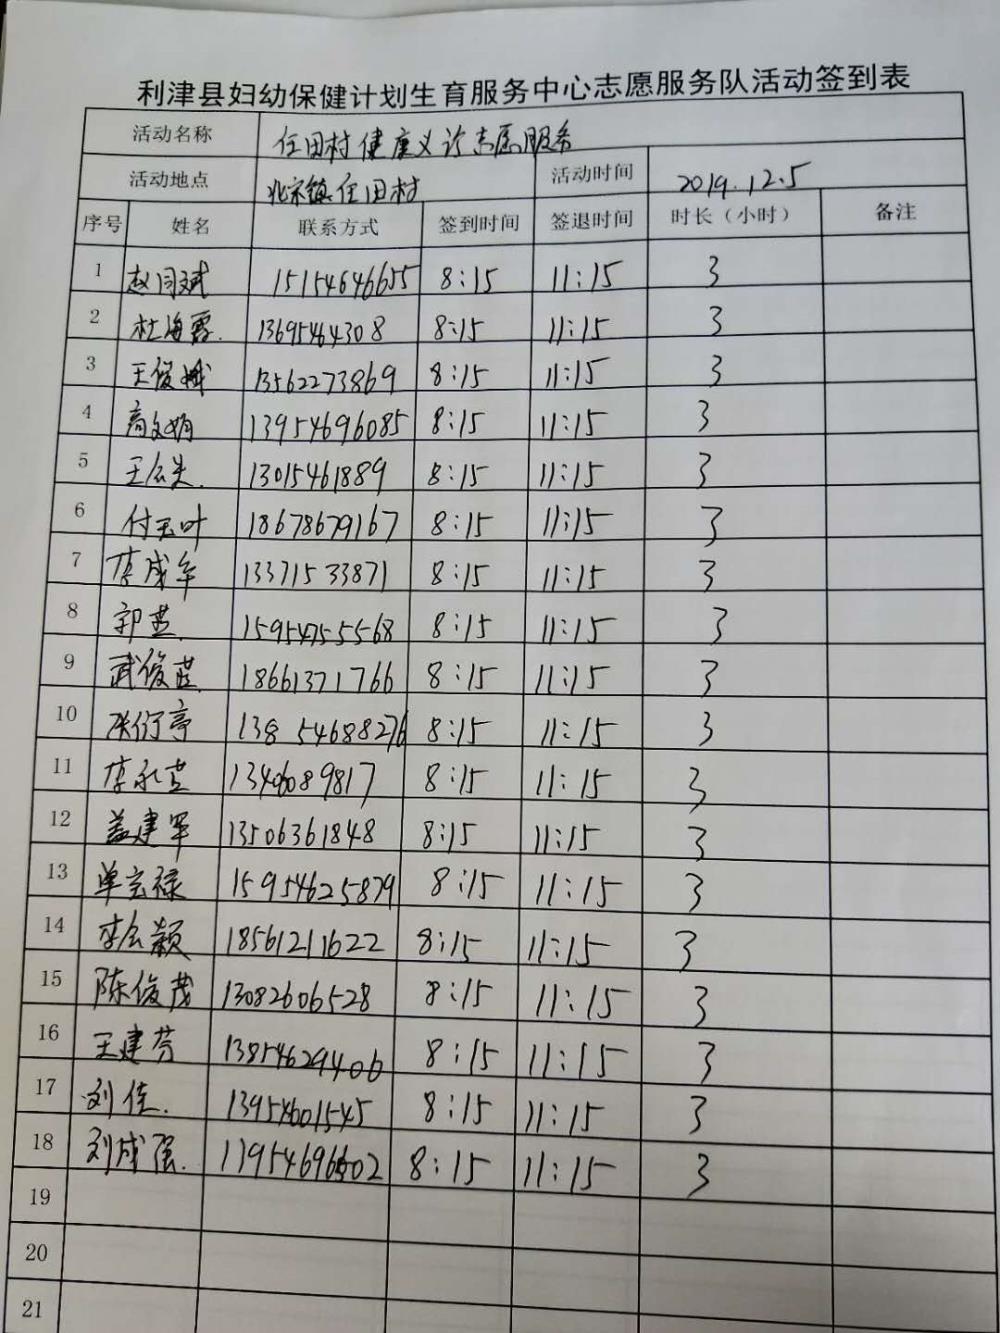 利津县妇幼保健计划生育服务中心志愿服务队活动签到表
活动名称 任田村健康义诊志愿服务
活动地点 北宋镇任田村 活动时间 2019.12.5
序号 姓名 联系方式 签到时间 签退时间 时长（小时） 备注
1 赵同斌 15154646655 8:15 11:15 3
2 杜海霞 13695464308 8:15 11:15 3
3 王俊娥 13562273869 8:15 11:15 3
4 高文娟 13954696085 8:15 11:15 3
5 13015461889 8:15 11:15 3
6 付玉叶 18678679167 8:15 11:15 3
7 李成军 13371533871 8:15 11:15 3
8 郭燕 15954755568 8:15 11:15 3
9 武俊燕 18661371766 8:15 11:15 3
10 13854688276 8:15 11:15 3
11 李永芝 8:15 11:15 3
12 盖建军 13506361848 8:15 11:15 3
13 单宝禄 15954625879 8:15 11:15 3
14 李会颖 18561211622 8:15 11:15 3
15 陈俊茂 13082606528 8:15 11:15 3
16 王建芬 13854629406 8:15 11:15 3
17 刘佳 13954601545 8:15 11:15 3
18 刘成强 8:15 11:15 3
19
20
21